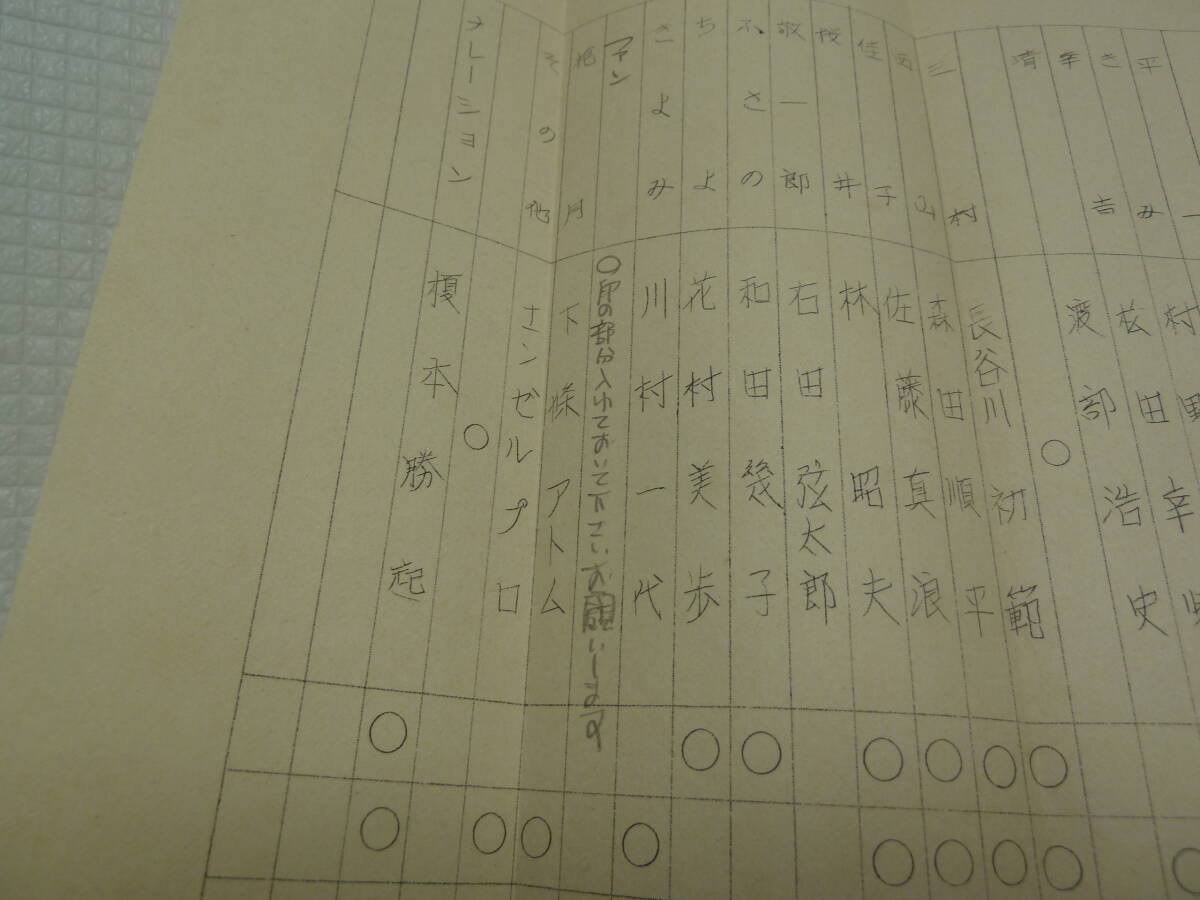 平一
きみ
幸吉
清
三村
西山
佳子
枝井
敬一郎
ふさの
ちよ
きよみ
ファン
その他
ナレーション
村野
松田幸
渡部浩史
○
長谷川初範
森田順平
佐藤真浪
林昭夫
石田弦太郎
和田幾子
花村美歩
川村一代
○印の部分入れておいて下さいお願いします
下條アトム
エンゼルプロ
○
榎本勝起
○ ○ ○ ○ ○ ○ ○
○ ○ ○ ○ ○ ○ ○ ○ ○